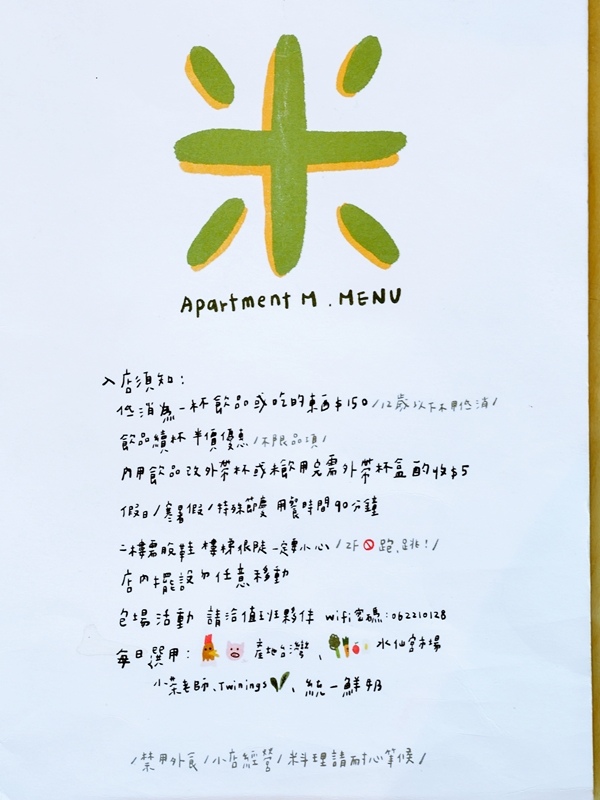 米
Apartment M . MENU
入店須知:
低消為一杯飲品或吃的東西$150 /12歲以下不用低消/
飲品續杯 半價優惠 /不限品項/
內用飲品改外帶杯或未飲用完需外帶杯盒酌收$5
假日/寒暑假/特殊節慶 用餐時間90分鐘
二樓需脫鞋 樓梯很陡一定要小心 /2F 跑.跳!/
店內擺設勿任意移動
包場活動 請洽值班夥伴 wifi密碼:062210128
每日選用: 產地台灣、 水仙宮市場
小茶老師、Twinings、統一鮮奶
/禁用外食/小店經營/料理請耐心等候/